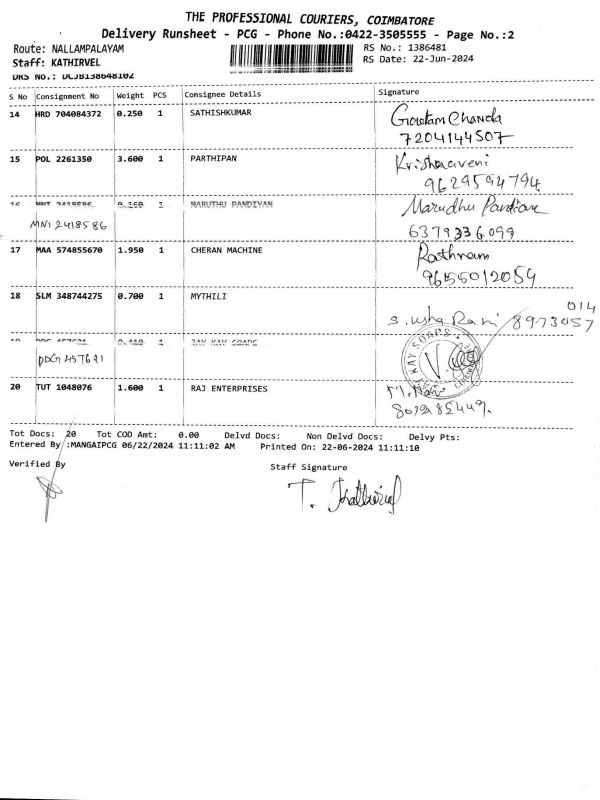 THE PROFESSIONAL COURIERS, COIMBATORE
Delivery Runsheet - PCG - Phone No.:0422-3505555 - Page No.:2
Route: NALLAMPALAYAM RS No.: 1386481
Staff: KATHIRVEL RS Date: 22-Jun-2024
DRS No.: DCJB138648102
S No Consignment No Weight PCS Consignee Details Signature
14 HRD 704084372 0.250 1 SATHISHKUMAR Gowtam Chanda
7204144507
15 POL 2261350 3.600 1 PARTHIPAN Krishnaveni
9629594794
16 MNI 2418586 0.160 1 MARUTHU PANDIYAN Marudhu Pandian
MNI 2418586 6379336099
17 MAA 574855670 1.950 1 CHERAN MACHINE Rathnam
18 SLM 348744275 0.700 1 MYTHILI S. Usha Rani 8973057
014
19 JAY KAY SOAPS
457621 JAY KAY SOAPS
20 TUT 1048076 1.600 1 RAJ ENTERPRISES
Tot Docs: 20 Tot COD Amt: 0.00 Delvd Docs: Non Delvd Docs: Delvy Pts:
Entered By :MANGAIPCG 06/22/2024 11:11:02 AM Printed On: 22-06-2024 11:11:10
Verified By Staff Signature
T. Kathirvel